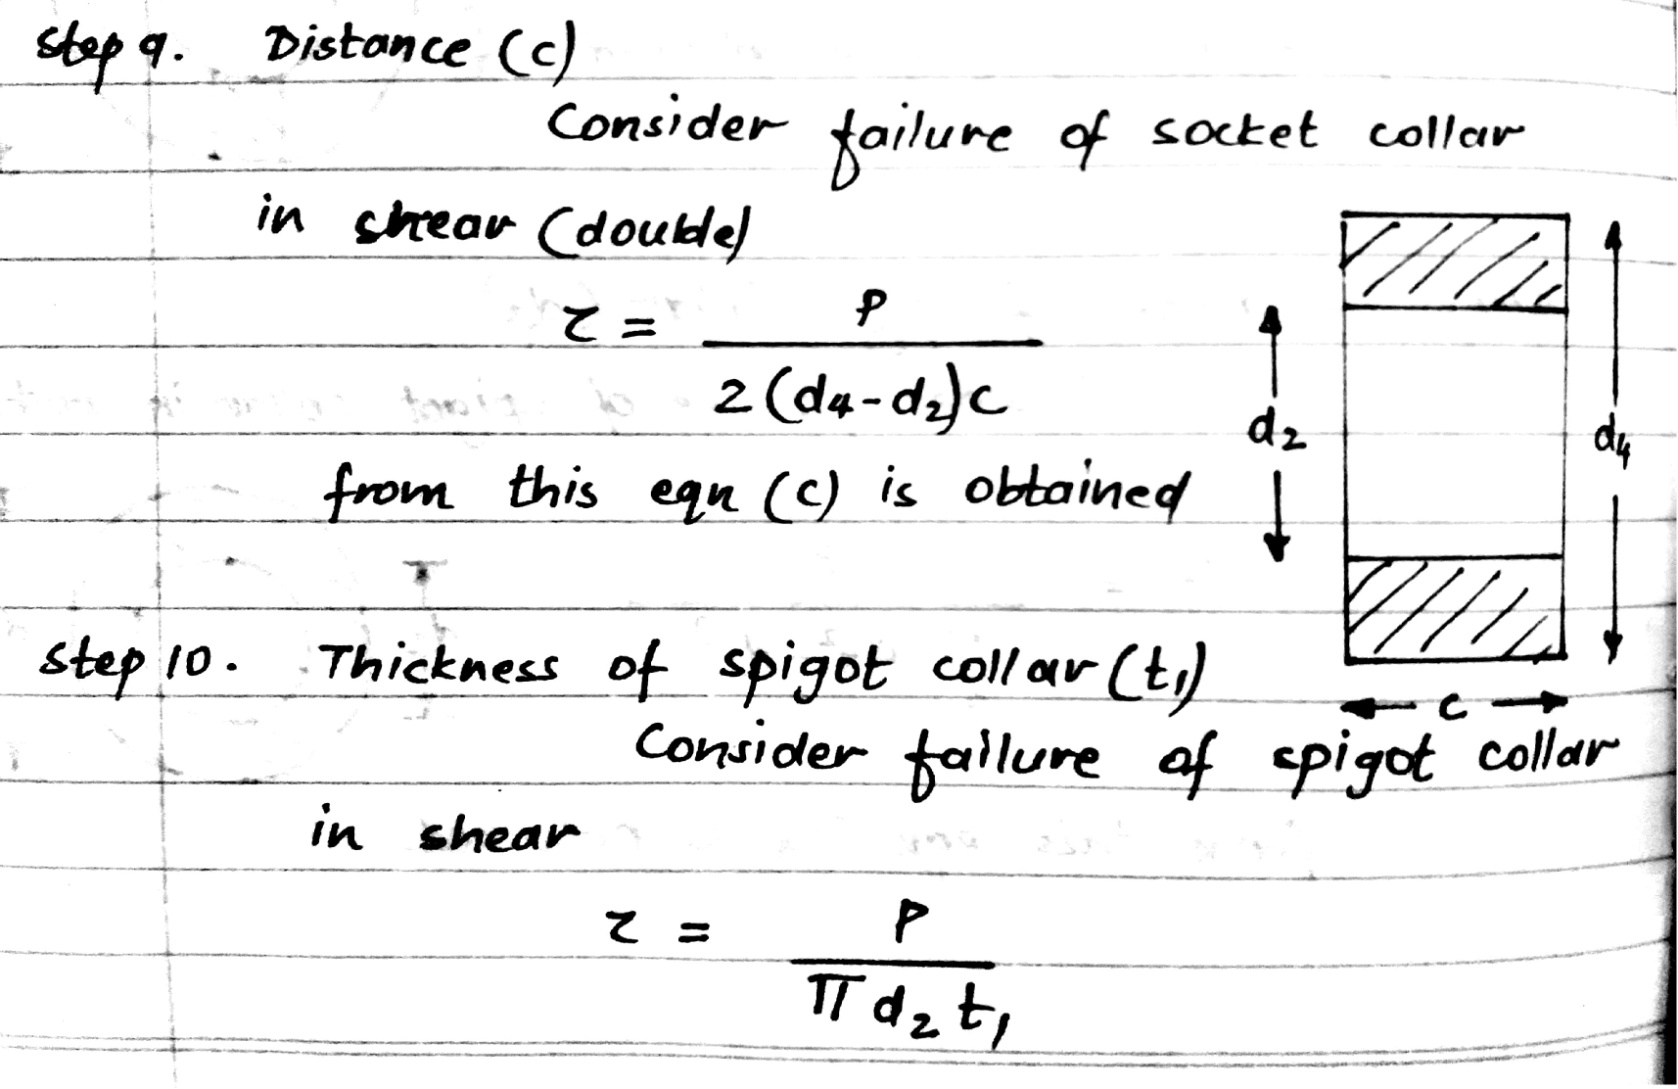 Step 9. Distance (c)
Consider failure of socket collar
in shear (double)
τ = P / 2(d4-d2)c
from this eqn (c) is obtained
d2
d4
c
Step 10. Thickness of spigot collar (t1)
Consider failure of spigot collar
in shear
τ = P / π d2 t1